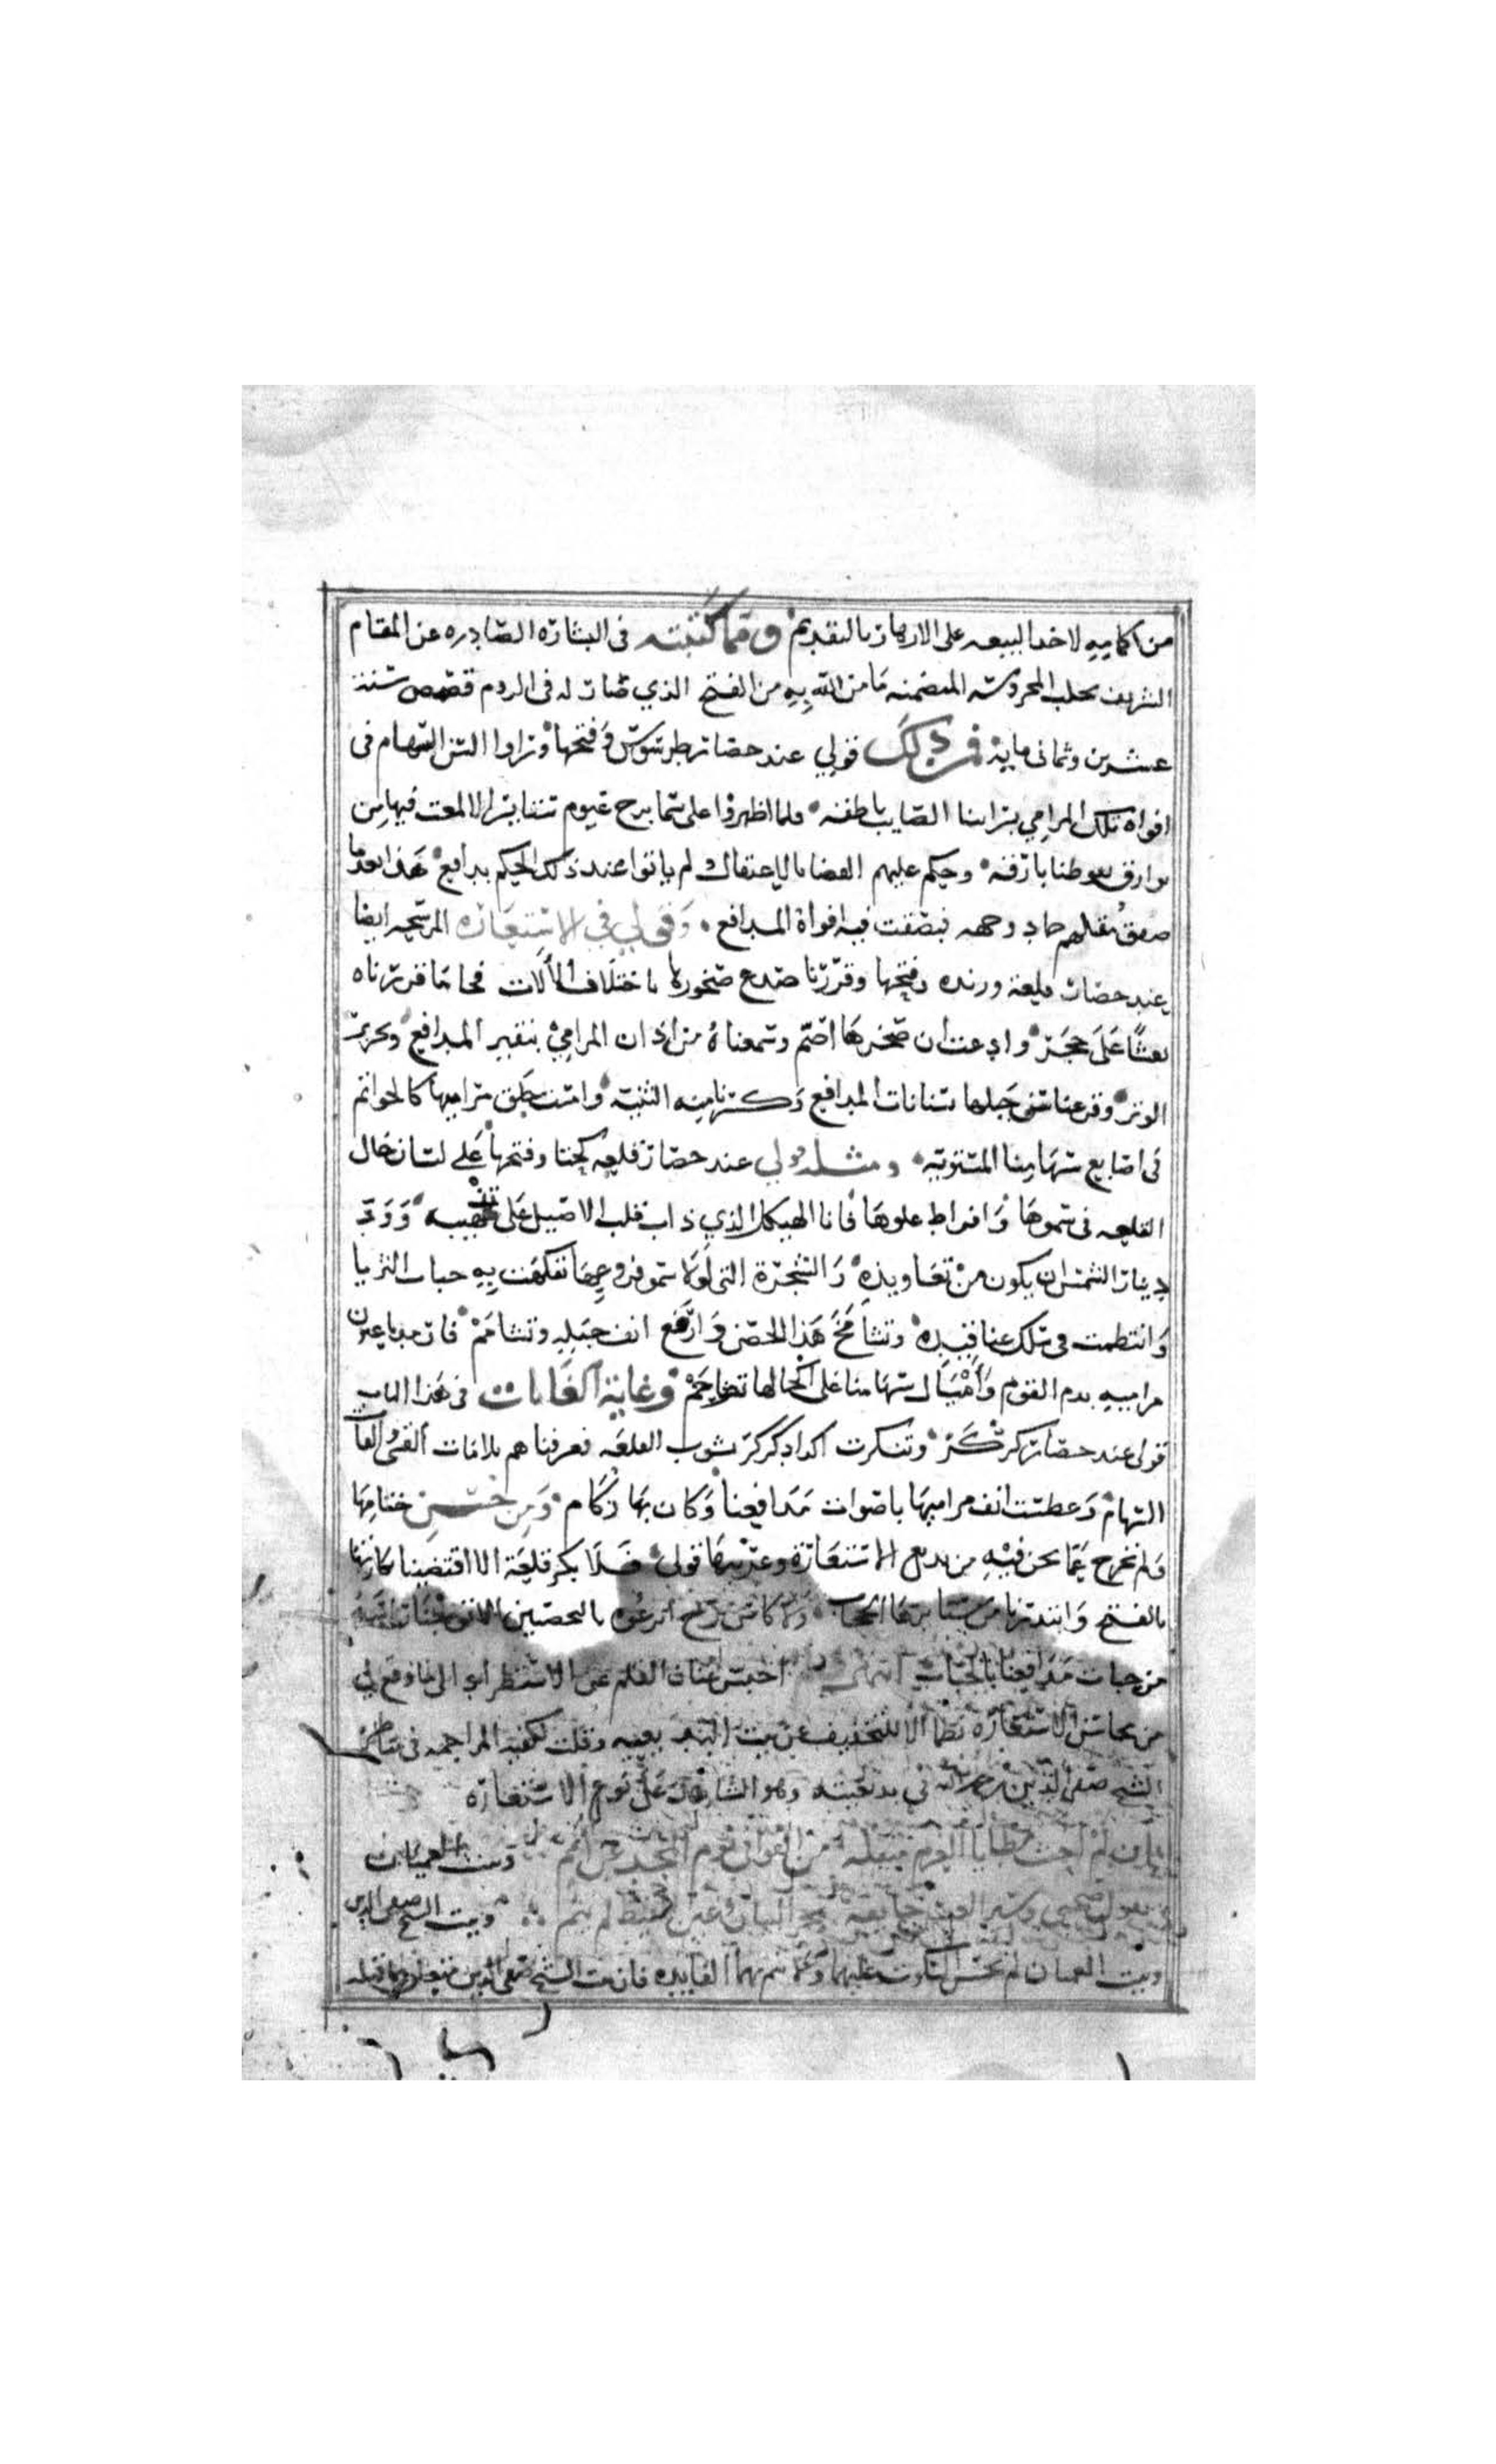 من اكمامه لاخذ البيعه على الازهار بالتقديم ومما كتبته فى البشاره الصادره عن المقام
الشريف بحلب المحروسه المتضمنه ما من الله به من الفتح الذي صار له فى الروم قصص سنة
عشرين وثمانى ماية فمن ذلك قولي عند حصار طرسوس وفتحها وزاروا السن السهام فى
افواه تلك المرامي بترابنا الصايب ناطقه فلما اظهروا على سما برج غيوم ستاير الا لمعت فيها من
بوارق نفوطنا بارقه وحكم عليهم القضا بالاعتقال لم ياتوا عند ذلك الحكم بدافع هذا بعد ما
صفق مقلهم وجهه فبصقت فيه افواه المدافع وقولي في الاستعاره المرشحه ايضا
عند حصار قلعة درنده وفتحها وقررنا صدع صخورها باختلاف الالات فجا ما قررناه
نقشا على حجر وادعت ان صخرها اصم وسمعناه من اذان المرامي بنقير المدافع وتحرير
الوتر وقرعنا سن جبلها بسنانات المدافع وكسرنا منه الثنيه وامست حلق مراميها كالخواتم
فى اصابع سهامنا المستويه ومثله قولي عند حصار قلعه كختا وفتحها على لسان حال
القلعه فى سموها وافراط علوها فانا الهيكل الذي ذاب قلب الاصيل على تذهيبه وود
دينار الشمس ان يكون من تعاويذه والشجرة التى لولا سمو فروعها تفكهت به حبات الثريا
وانتظمت فى سلك عناقيده وتشامخ هذا الحصن وارتفع انف جبله وتشامم فارمدنا عيون
مراميه بدم القوم واميال سهامنا على اكحالها تتزاحم وغاية الغايات فى هذا الباب
قولى عند حصار كركر وتنكرت اكراد كركر بسور القلعه فعرفناهم بلامات القسى والفات
السهام وعطست انف مراميها باصوات مدافعنا وكان بها زكام ومن حسن ختامها
ولم نخرج عما نحن فيه من بديع الاستعارة وغريبها قولى فلا بكر قلعة الا اقتضينا بكارتها
بالفتح وابتذلنا من ستايرها الحجاب ولا كاس برج اترعوه بالتحصين الا توجنا راسه
من حبات مدافعنا بالحباب انتهى احبس عنان القلم عن الاستطراد الى ما وقع لي
من محاسن الاستعاره نظما الا للتخفيف عن بيت البديعيه وقلت لكعبه المراجعه فى
الشيخ صفى الدين رحمه الله فى بديعيته وهو الشاهد على نوع الاستعاره
ان لم احث مطايا العزم مثقلة من القوافى تؤم المجد عن امم وبيت العميان
يقول صحبي وسفن العيس خايضة بحر السراب وعين القيظ لم تنم وبيت الشيخ صفى الدين
وبيت العميان لم يحسن السكوت عليهما وما تتم بهما الفايده فان بيت الشيخ صفى الدين متعلق بما قبله